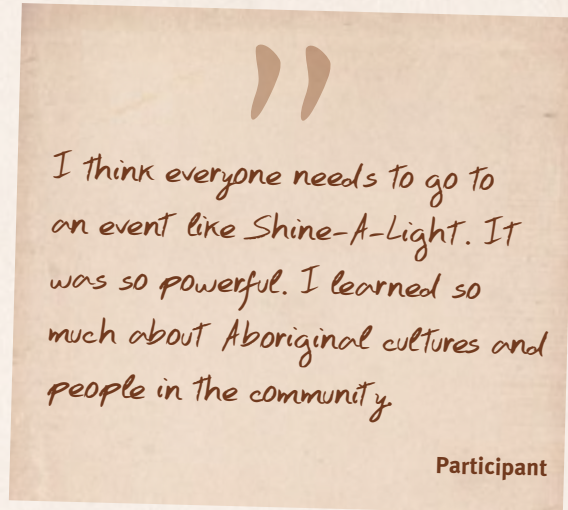 ”
I think everyone needs to go to
an event like Shine-A-Light. It
was so powerful. I learned so
much about Aboriginal cultures and
people in the community.
Participant